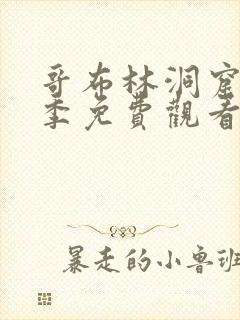 哥布林洞窟
季免費觀看
暴走的小魯班